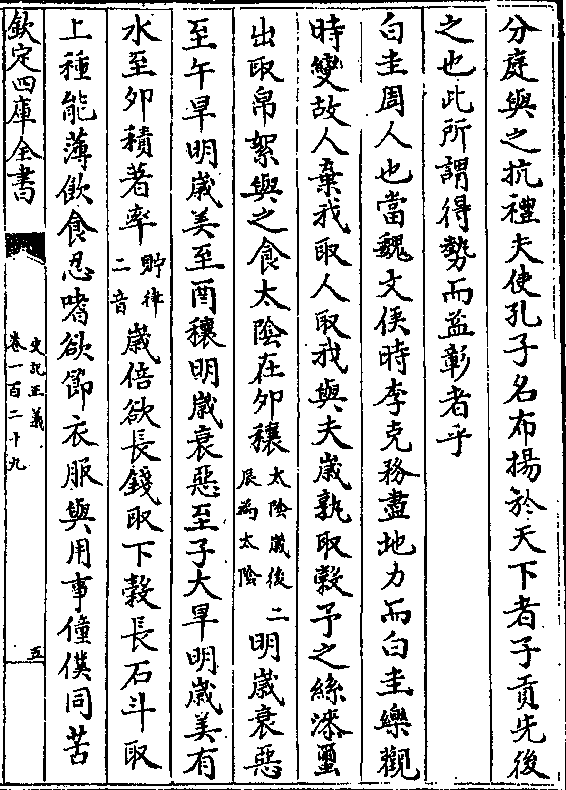 分庭與之抗禮夫使孔子名布揚於天下者子貢先後
之也此所謂得勢而益彰者乎
白圭周人也當魏文侯時李克務盡地力而白圭樂觀
時變故人棄我取人取我與夫歳孰取穀予之絲漆蠒
出取帛絮與之食太陰在夘穰太隂歳後二辰為太隂明歳衰惡
至午旱明歳美至酉穰明歳衰惡至子大旱明歳美有
水至夘積著率貯律二音歳倍欲長錢取下穀長石斗取
上種能薄飲食忍嗜欲節衣服與用事僮僕同苦
欽定四庫全書
史記正義
卷一百二十九
五